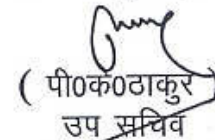 ( पी0के0ठाकुर )
उप सचिव